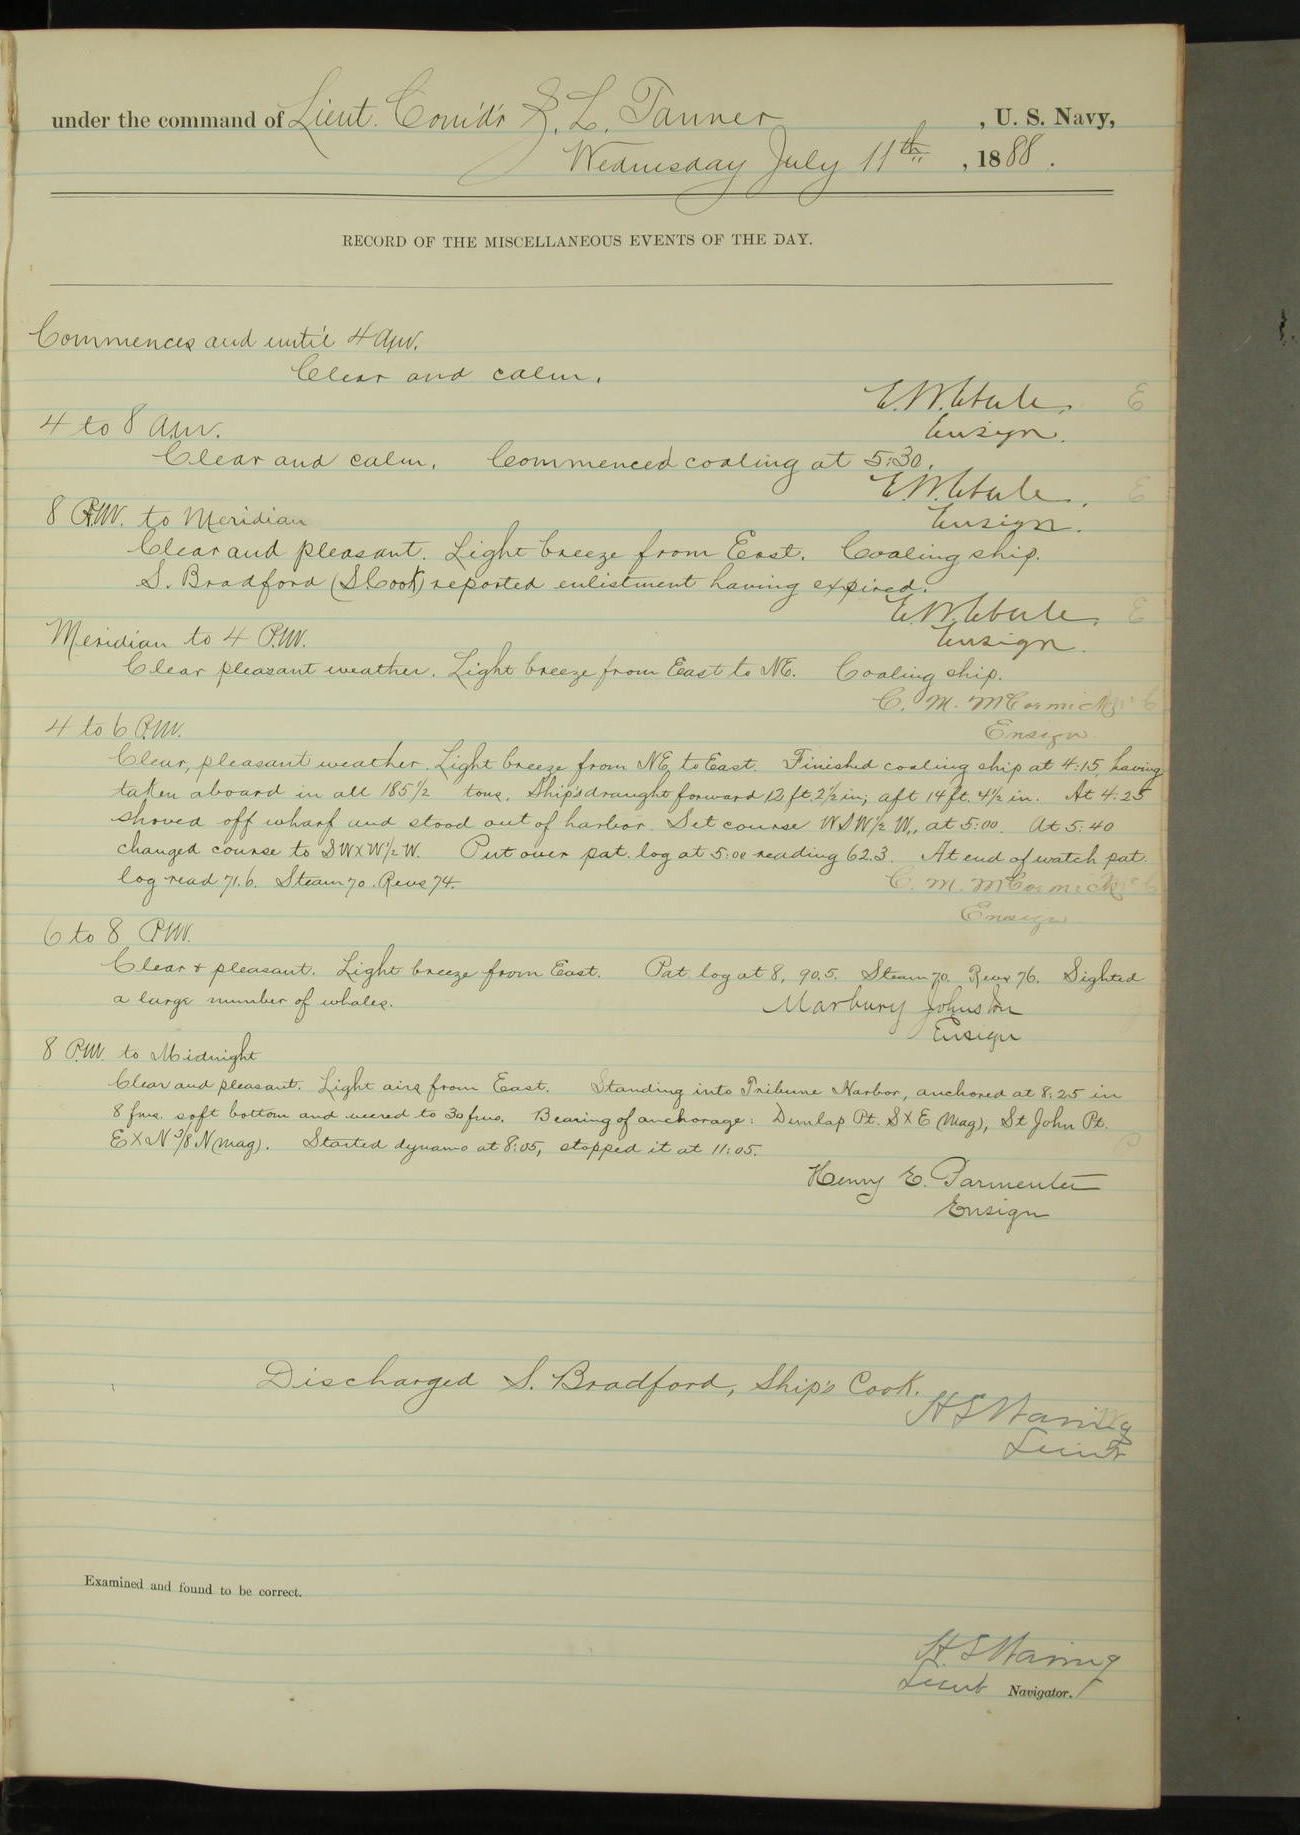 under the command of Lieut. Com'd'r Z. L. Tanner, U. S. Navy,
Wednesday July 11th, 1888.
RECORD OF THE MISCELLANEOUS EVENTS OF THE DAY.
Commences and until 4 a.m.
Clear and calm.
E.W. Eberle,
Ensign.
4 to 8 a.m.
Clear and calm. Commenced coaling at 5:30.
E.W. Eberle,
Ensign.
8 A.M. to Meridian
Clear and pleasant. Light breeze from East. Coaling ship.
S. Bradford (S.Cook) reported enlistment having expired.
E.W. Eberle,
Ensign.
Meridian to 4 P.M.
Clear pleasant weather. Light breeze from East to NE. Coaling ship.
C. M. McCormick
Ensign.
4 to 6 P.M.
Clear, pleasant weather. Light breeze from NE to East. Finished coaling ship at 4:15, having
taken aboard in all 185 1/2 tons. Ship's draught forward 12 ft. 2 1/2 in; aft 14 ft. 4 1/2 in. At 4:25
shoved off wharf and stood out of harbor. Set course WSW 1/2 W., at 5:00. At 5:40
changed course to SWxW 1/2 W. Put over pat. log at 5:00 reading 62.3. At end of watch pat.
log read 71.6. Steam 70. Revs 74.
C. M. McCormick
Ensign
6 to 8 P.M.
Clear + pleasant. Light breeze from East. Pat. log at 8, 90.5. Steam 70. Revs 76. Sighted
a large number of whales.
Marbury Johnston
Ensign
8 P.M. to Midnight
Clear and pleasant. Light airs from East. Standing into Tribune Harbor, anchored at 8:25 in
8 fms. soft bottom and veered to 30 fms. Bearing of anchorage: Dunlap Pt. SxE (mag), St John Pt.
ExN 3/8 N (mag). Started dynamo at 8:05, stopped it at 11:05.
Henry E. Parmenter
Ensign
Discharged S. Bradford, Ship's Cook.
H S Waring
Lieut
Examined and found to be correct.
H. S Waring
Lieut Navigator.